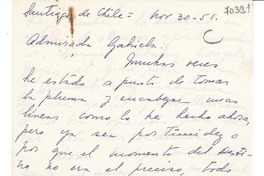 Santiago de Chile = Nov 30-51.
70391
Admirada Gabriela.
Muchas veces
he estado a punto de tomar
la pluma y encabezar unas
líneas como lo he hecho ahora,
pero ya sea por timidez o
por que el momento del Desti-
no no era el preciso, todo